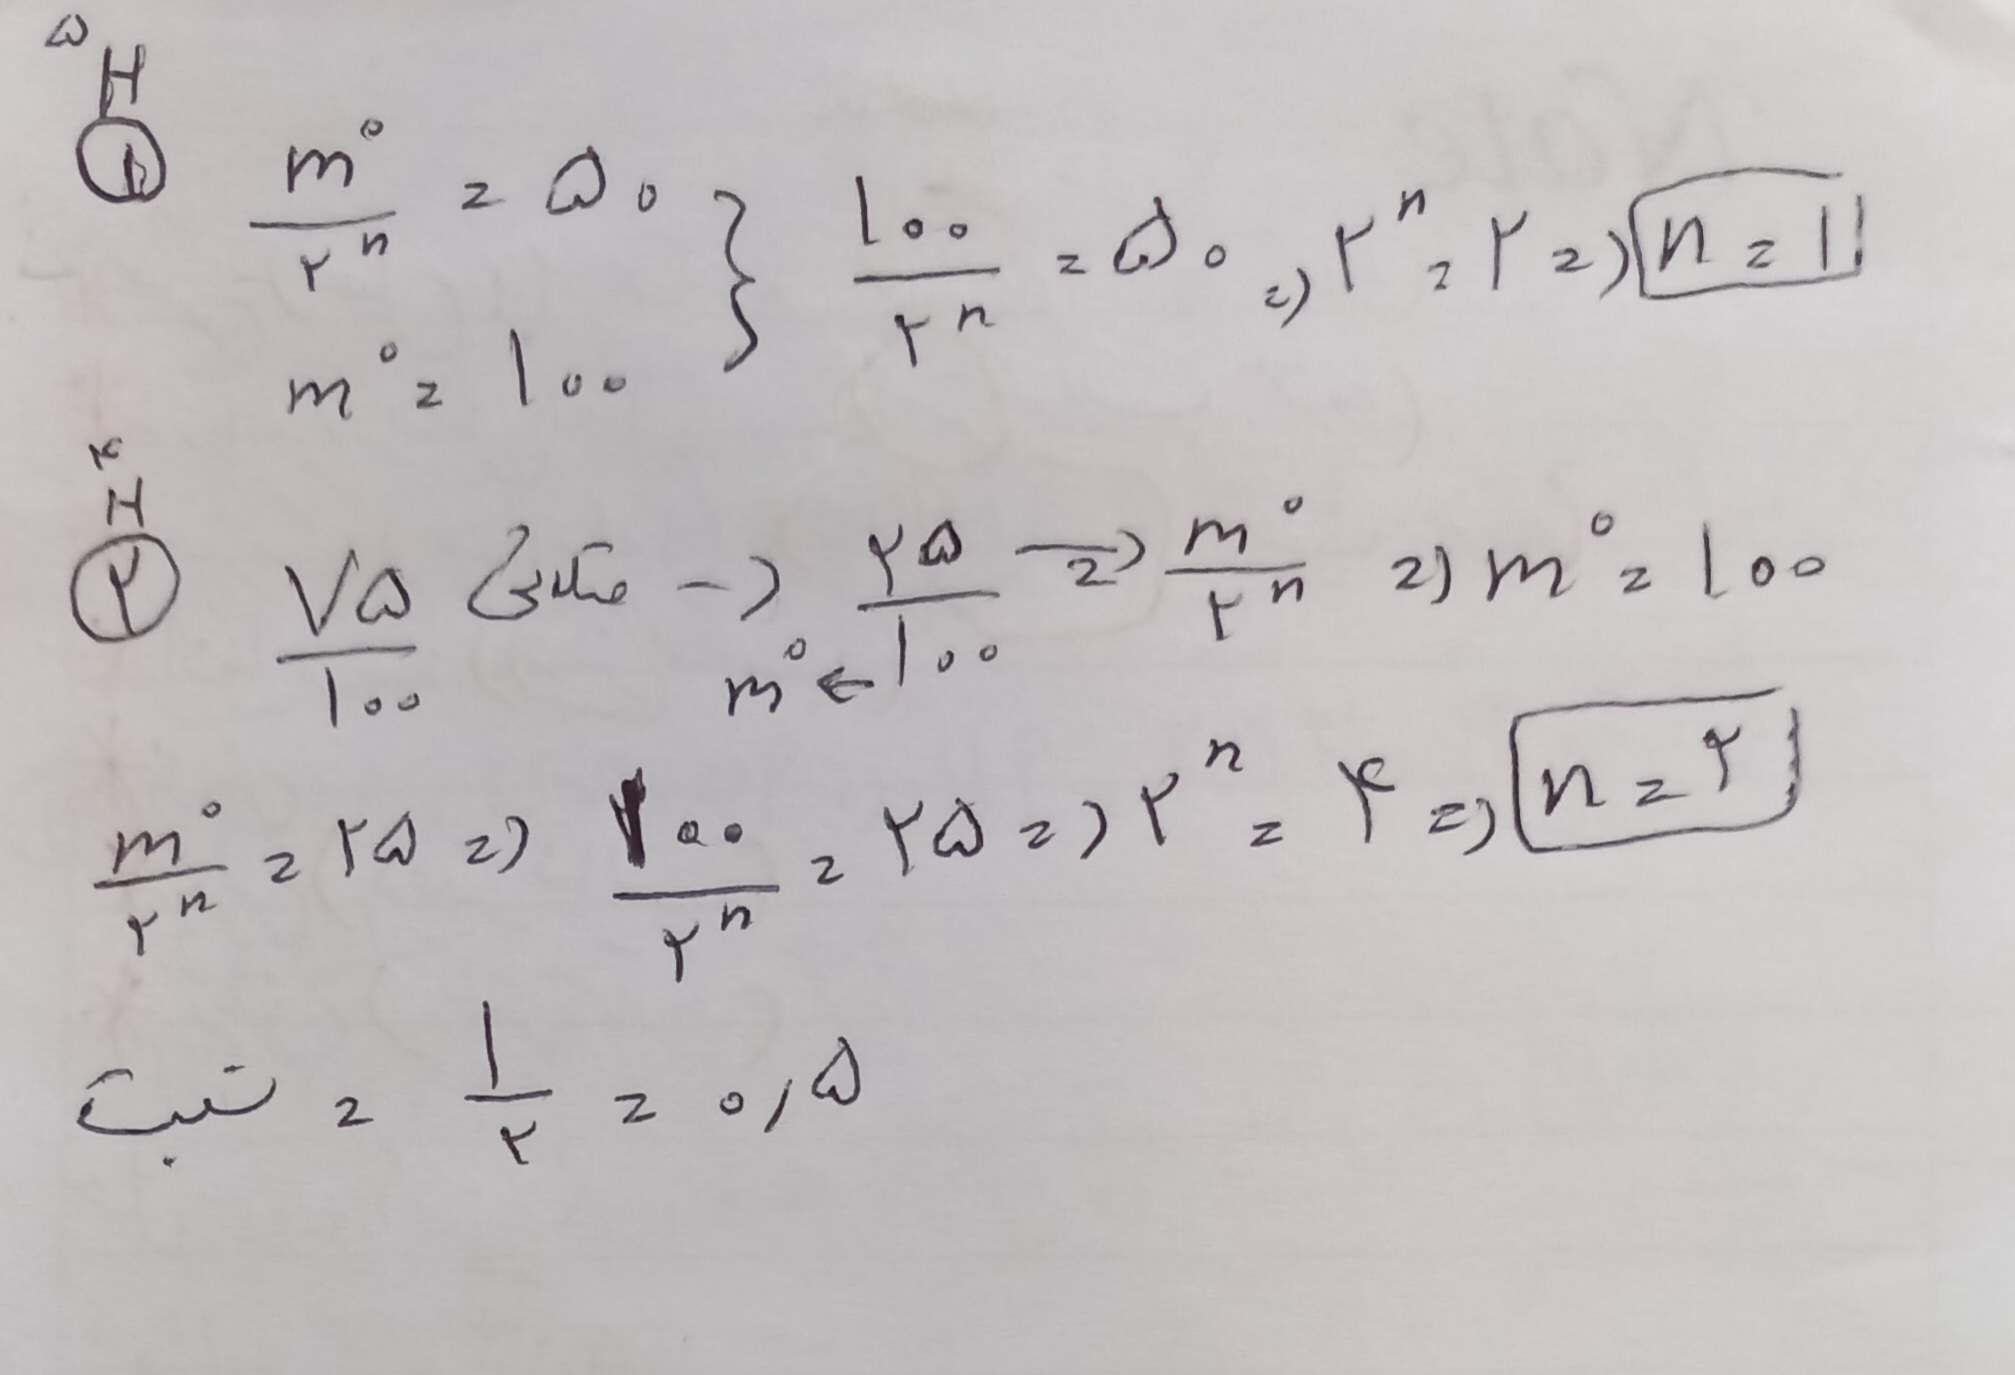 ۵H
۱ m°/۲ⁿ = ۵۰ } ۱۰۰/۲ⁿ = ۵۰ => ۲ⁿ = ۲ => n = ۱
m° = ۱۰۰
۴H
۲ ۷۵/۱۰۰ متلاشی -> ۲۵/۱۰۰ => m°/۲ⁿ => m° = ۱۰۰
m° ←
m°/۲ⁿ = ۲۵ => ۱۰۰/۲ⁿ = ۲۵ => ۲ⁿ = ۴ => n = ۲
نسبت = ۱/۲ = ۰,۵